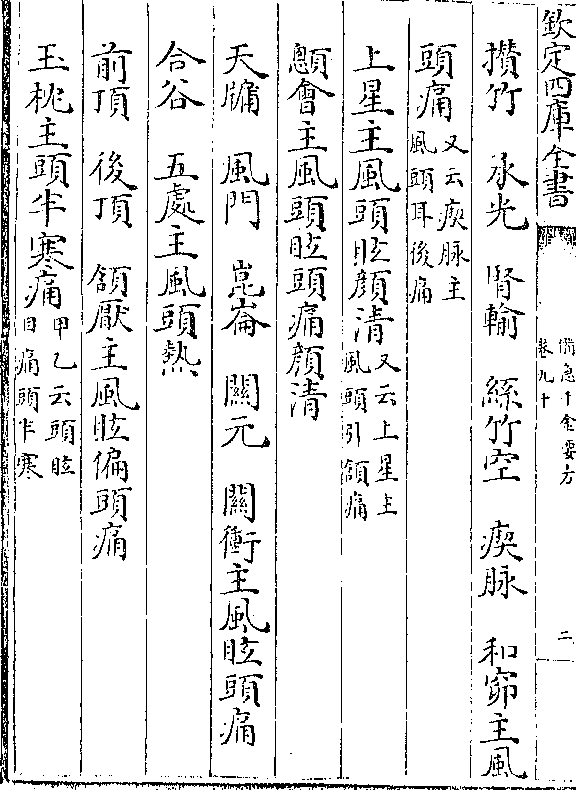 欽定四庫全書
備急千金要方
卷九十
二
攢竹　承光　腎輸　絲竹空　瘈脉　和窌主風
頭痛又云瘈脉主
風頭耳後痛
上星主風頭眩顔清又云上星主
風頭引頷痛
顖會主風頭眩頭痛顔清
天牖　風門　崑崙　關元　關衝主風眩頭痛
合谷　五處主風頭熱
前頂　後頂　頷厭主風眩偏頭痛
玉枕主頭半寒痛甲乙云頭眩
目痛頭半寒